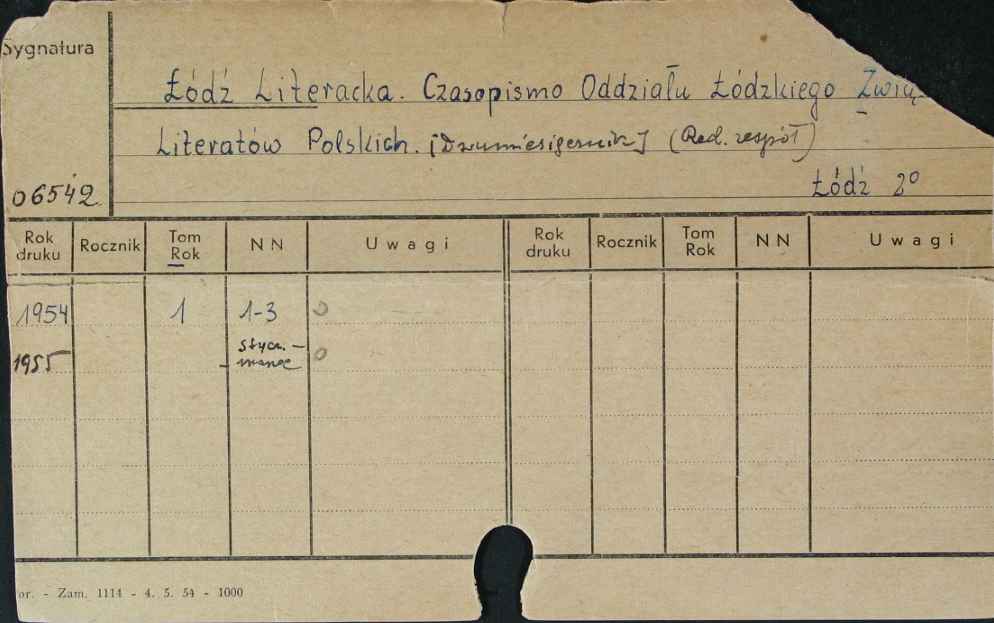 Sygnatura
Łódź Literacka. Czasopismo Oddziału Łódzkiego Zwią
Literatów Polskich. [Dwumiesięcznik] (Red. zespół)
06542
Łódź 2°
Rok druku Rocznik Tom Rok NN Uwagi Rok druku Rocznik Tom Rok NN Uwagi
1954 1 1-3 0
1955 stycz. - marzec 0
or. - Zam. 1114 - 4. 5. 54 - 1000